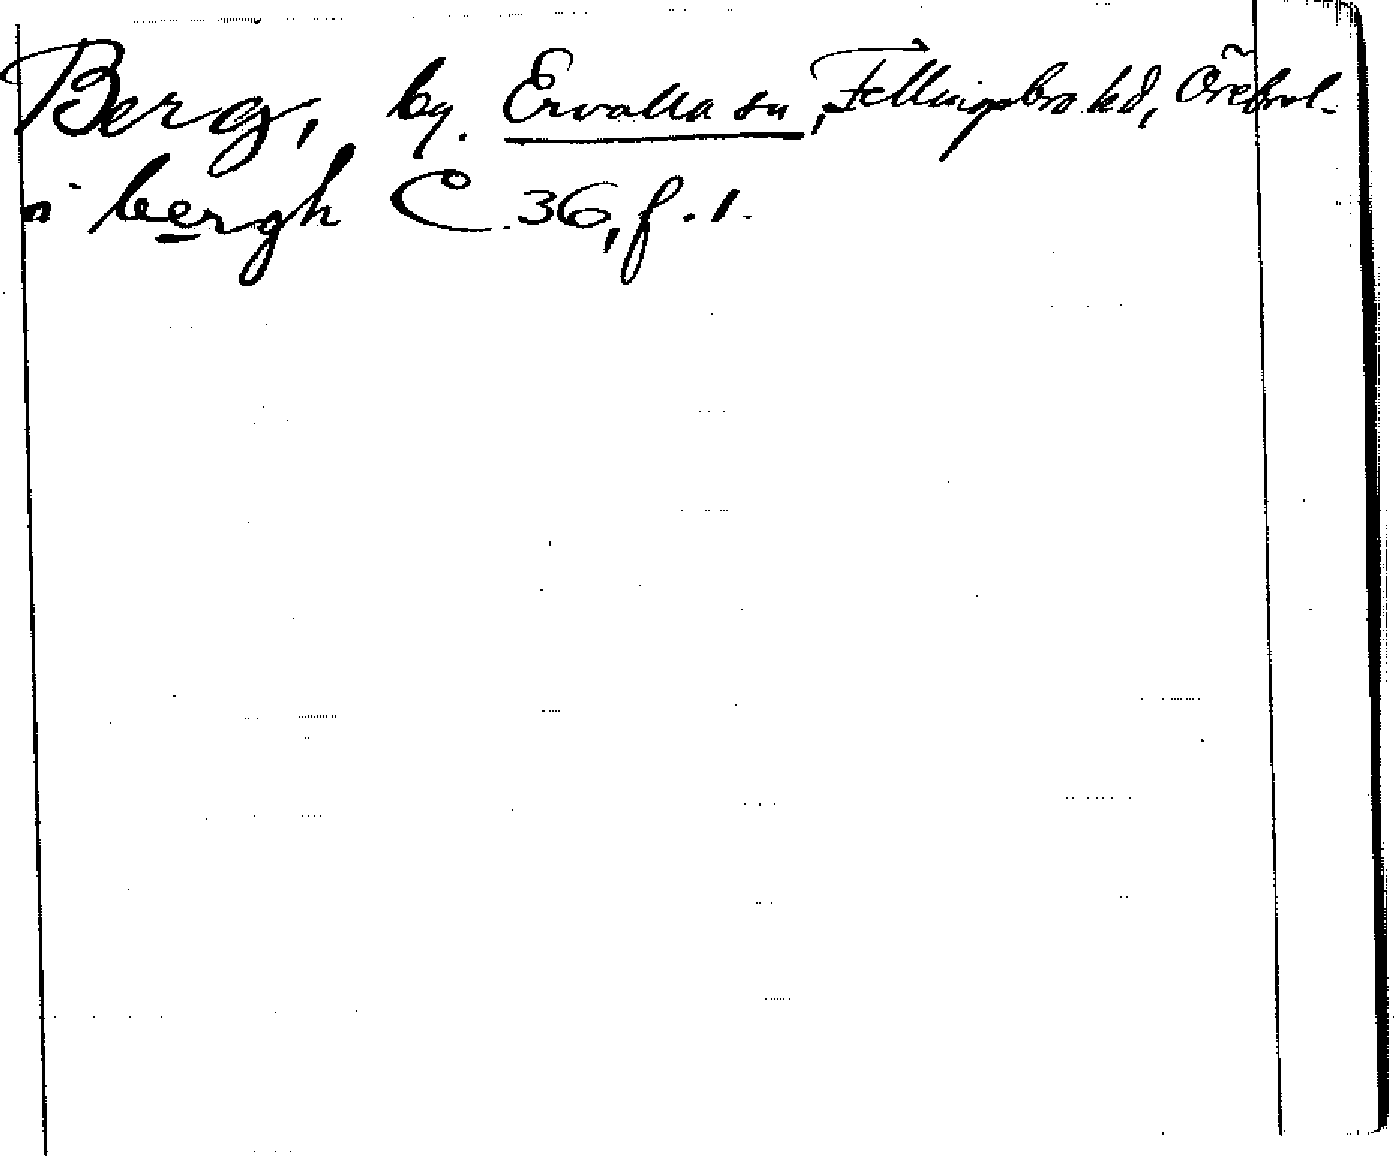 Berg, by. Ervalla sn, Fellingsbro hd, Örebro l.
i bergh C 36, f. 1.